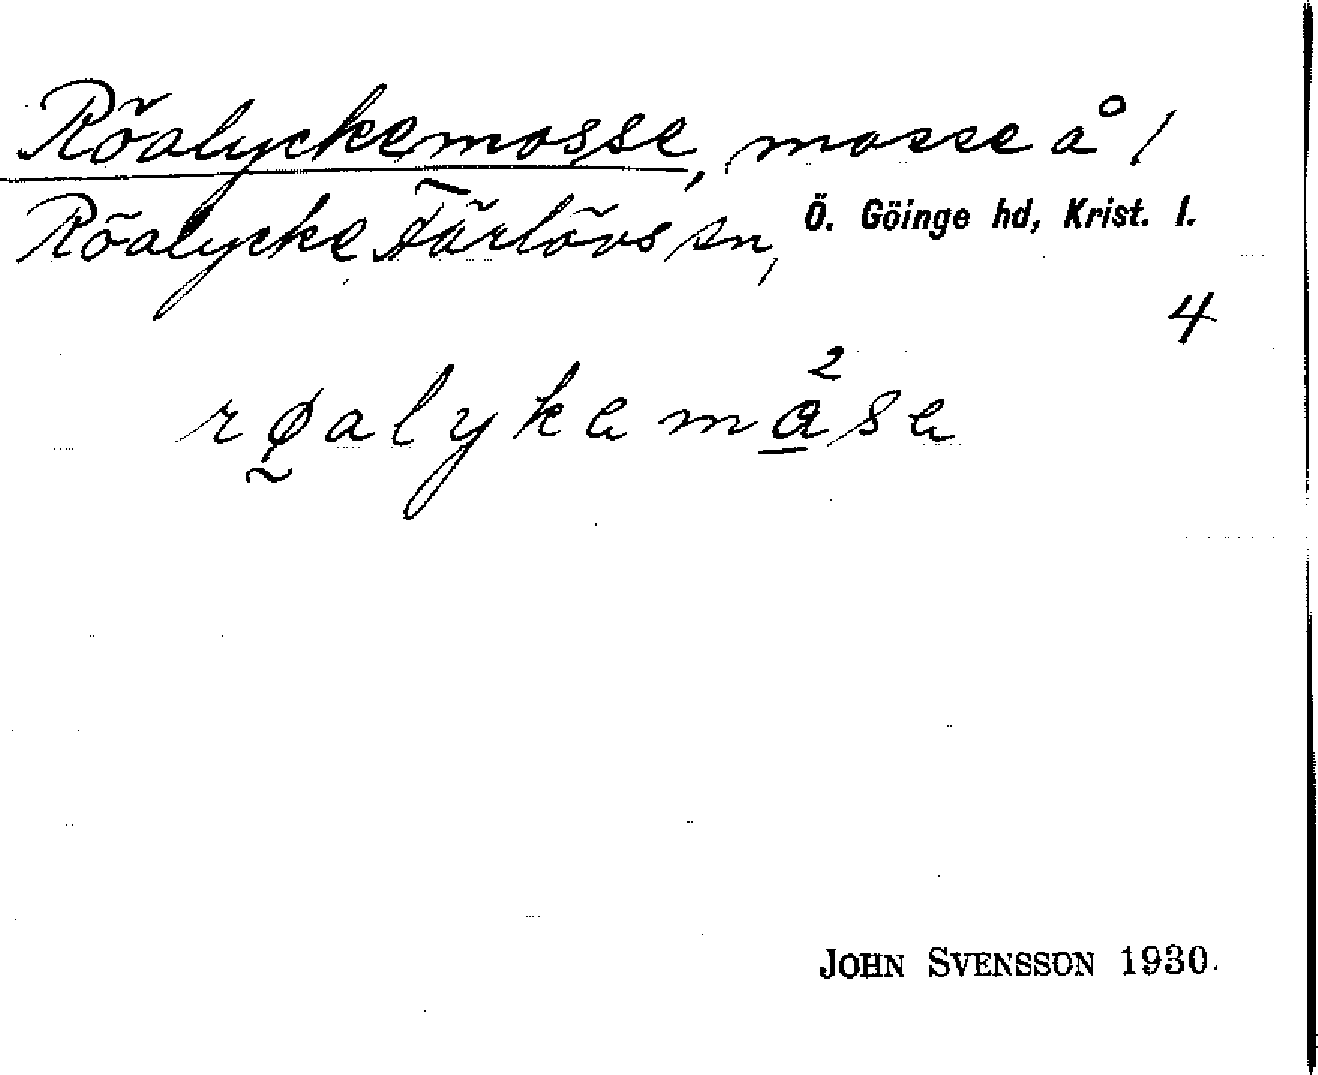 Röalyckemosse, mosse å /
Röalycke Färlövs sn, Ö. Göinge hd, Krist. l.
4
røalykamåsa
2
JOHN SVENSSON 1930.